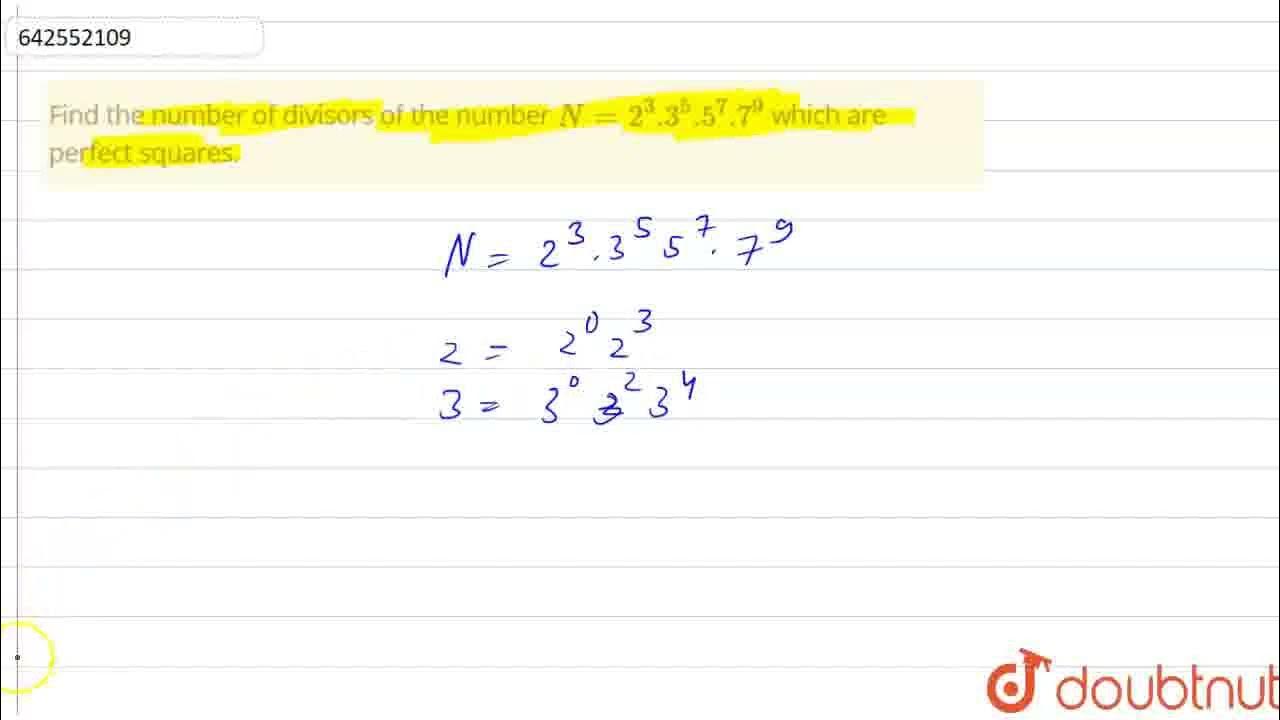 642552109
Find the number of divisors of the number N = 2³.3⁵.5⁷.7⁹ which are
perfect squares.
N = 2³.3⁵ 5⁷.7⁹
2 = 2⁰ 2³
3 = 3⁰ 3² 3⁴
doubtnut